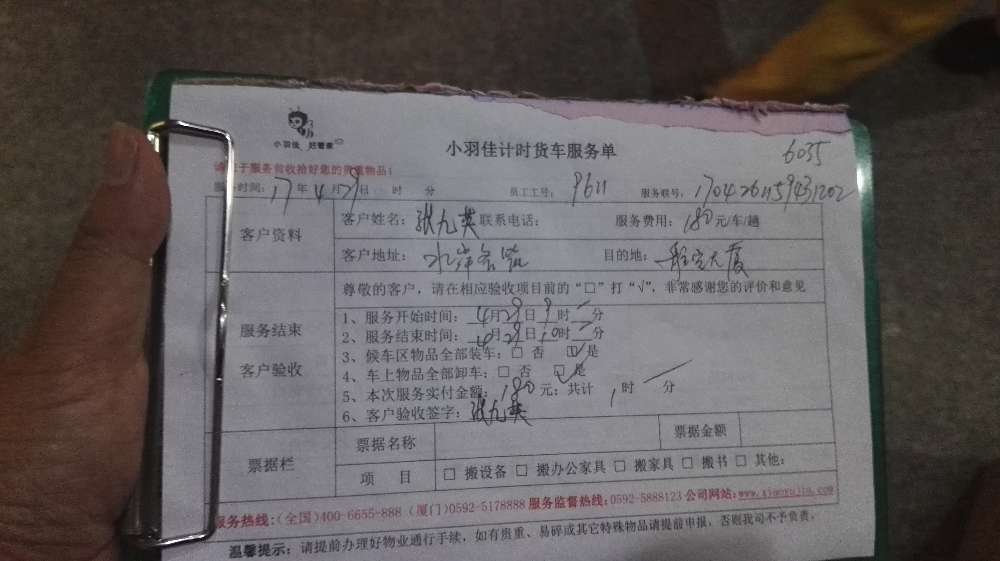 小羽佳 好管家
小羽佳计时货车服务单
6035
请于服务前收拾好您的贵重物品:
服务时间: 17年4月29日 时 分 员工工号: 9611 服务联号: 1704261159431202
客户资料
客户姓名: 张九英 联系电话: 服务费用: 180元/车/趟
客户地址: 水岸名筑 目的地: 航空大厦
服务结束
客户验收
尊敬的客户，请在相应验收项目前的“□”打“√”，非常感谢您的评价和意见
1、服务开始时间: 4月29日9时 分
2、服务结束时间: 4月29日10时 分
3、候车区物品全部装车: □ 否 ☑ 是
4、车上物品全部卸车: □ 否 ☑ 是
5、本次服务实付金额: 180元; 共计 1 时 分
6、客户验收签字: 张九英
票据栏
票据名称 票据金额
项 目 □ 搬设备 □ 搬办公家具 □ 搬家具 □ 搬书 □ 其他:
服务热线:(全国)400-6655-888 (厦门)0592-5178888 服务监督热线:0592-5888123 公司网站:www.xiaoyujia.com
温馨提示: 请提前办理好物业通行手续，如有贵重、易碎或其它特殊物品请提前申报，否则我司不予负责。